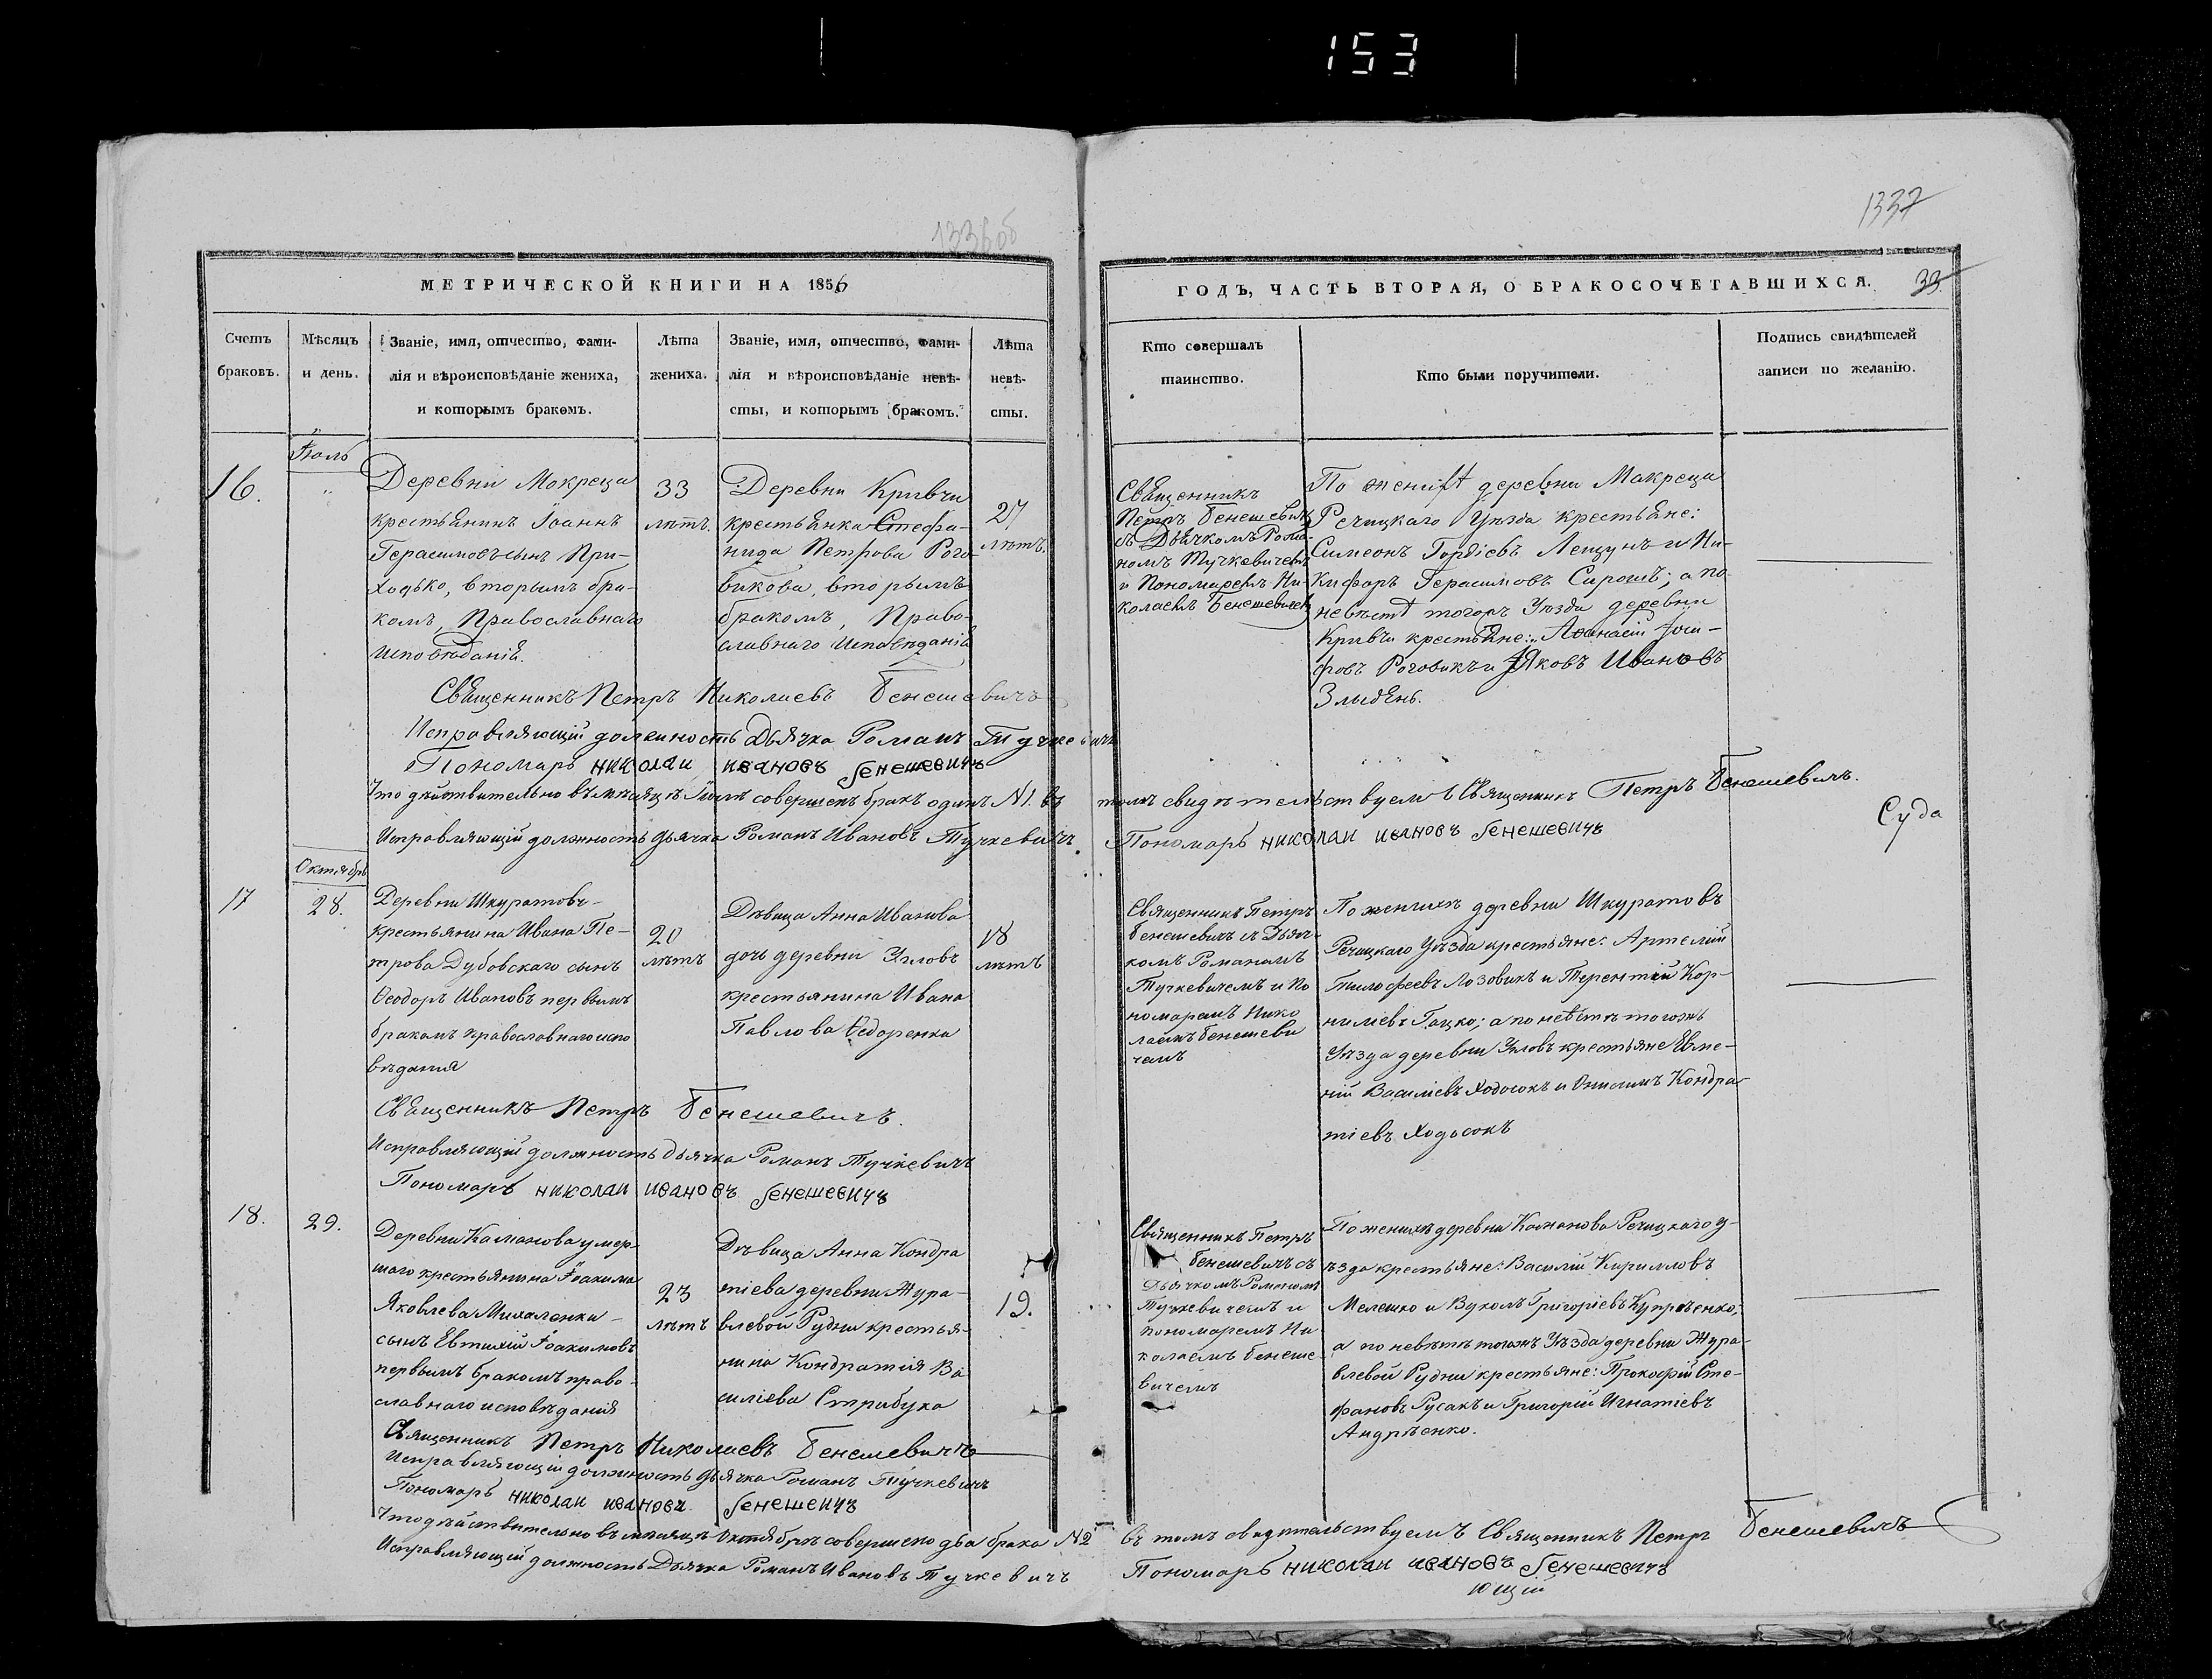 153
1337
1336об
МЕТРИЧЕСКОЙ КНИГИ НА 1856
ГОДЪ, ЧАСТЬ ВТОРАЯ, О БРАКОСОЧЕТАВШИХСЯ.
33
Счетъ
браковъ.
Мѣсяцъ
и день.
Званіе, имя, отчество, фами-
лія и вѣроисповѣданіе жениха,
и которымъ бракомъ.
Лѣта
жениха.
Званіе, имя, отчество, фами-
лія и вѣроисповѣданіе невѣ-
сты, и которымъ бракомъ.
Лѣта
невѣ-
сты.
Кто совершалъ
таинство.
Кто были поручители.
Подпись свидѣтелей
записи по желанію.
Іюль
16.
Деревни Мокреца
крестьянинъ Іоаннъ
Герасимовъ сынъ При-
ходько, вторымъ бра-
комъ, Православнаго
исповѣданія.
33
лѣтъ.
Деревни Кривчи
крестьянка Стефа-
нида Петрова Рого-
викова, вторымъ
бракомъ, Право-
славнаго исповѣданія
27
лѣтъ.
Священникъ
Петръ Бенешевичъ
съ Дьячкомъ Рома-
номъ Тучкевичемъ
и Пономаремъ Ни-
колаемъ Бенешевичемъ
По женихѣ деревни Макреца
Речицкаго Уѣзда крестьяне:
Симеонъ Гордіевъ Лещунъ и Ни-
кифоръ Герасимовъ Сирошъ; а по
невѣстѣ тогожъ Уѣзда деревни
Кривчи крестьяне: Аѳанасій Іоси-
фовъ Роговикъ и Яковъ Ивановъ
Злыдень.
Священникъ Петръ Николаевъ Бенешевичъ
Исправляющій должность Дьячка Романъ Тучкевичъ
Пономарь николаи ивановъ бенешевичъ
Что дѣйствительно въ мѣсяцѣ Іюлѣ совершенъ бракъ одинъ №1. въ томъ свидѣтельствуемъ Священникъ Петръ Бенешевичъ.
Исправляющій должность дьячка Романъ Ивановъ Тучкевичъ. Пономарь николаи ивановъ бенешевичъ
Суда
Октябрь
17
28.
Деревни Шкуратовъ-
крестьянина Ивана Пе-
трова Дубовскаго сынъ
Ѳеодоръ Ивановъ первымъ
бракомъ православнаго испо
вѣданія
20
лѣтъ
Дѣвица Анна Иванова
дочь деревни Углов
крестьянина Ивана
Павлова Ѳедоренка
18
лѣтъ
Священникъ Петръ
Бенешевичъ съ Дьяч-
комъ Романомъ
Тучкевичемъ и По
номаремъ Нико
лаемъ Бенешеви
чемъ
По женихѣ деревни Шкуратовъ
Речицкаго Уѣзда крестьяне: Артемій
Тимофеевъ Лозовикъ и Терентій Кор-
ниліевъ Гацко; а по невѣстѣ тогожъ
Уѣзда деревни Угловъ крестьяне Евме-
ній Василіевъ Ходосокъ и Онисимъ Кондра-
тіевъ Ходосокъ
Священникъ Петръ Бенешевичъ.
Исправляющій должность дьячка Романъ Тучкевичъ
Пономарь николаи ивановъ бенешевичъ
18.
29.
Деревни Каманова умер-
шаго крестьянина Іоакима
Яковлева Михаленки
сынъ Евтихій Іоакимовъ
первымъ бракомъ право-
славнаго исповѣданія
23
лѣтъ
Дѣвица Анна Кондра
тіева деревни Жура-
влевой Рудни крестья-
нина Кондратія Ва
силіева Стрибука
19.
Священникъ Петръ
Бенешевичъ съ
Дьячкомъ Романомъ
Тучкевичемъ и
пономаремъ Ни
колаемъ Бенеше
вичемъ
По женихѣ деревни Каманова Речицкаго у-
ѣзда крестьяне: Василій Кирилловъ
Мелешко и Вуколъ Григоріевъ Купрѣенко;
а по невѣстѣ тогожъ Уѣзда деревни Жура-
влевой Рудни крестьяне: Прокофій Сте-
фановъ Русакъ и Григорій Игнатіевъ
Андрѣенко.
Священникъ Петръ Николаевъ Бенешевичъ
Исправляющій должность дьячка Романъ Тучкевичъ
Пономарь николаи ивановъ бенешевичъ
Что дѣйствительно въ мѣсяцѣ Октябрѣ совершено два брака №2 въ томъ свидѣтельствуемъ Священникъ Петръ Бенешевичъ
Исправляющій должность Дьячка Романъ Ивановъ Тучкевичъ Пономарь николаи ивановъ бенешевичъ
ющій